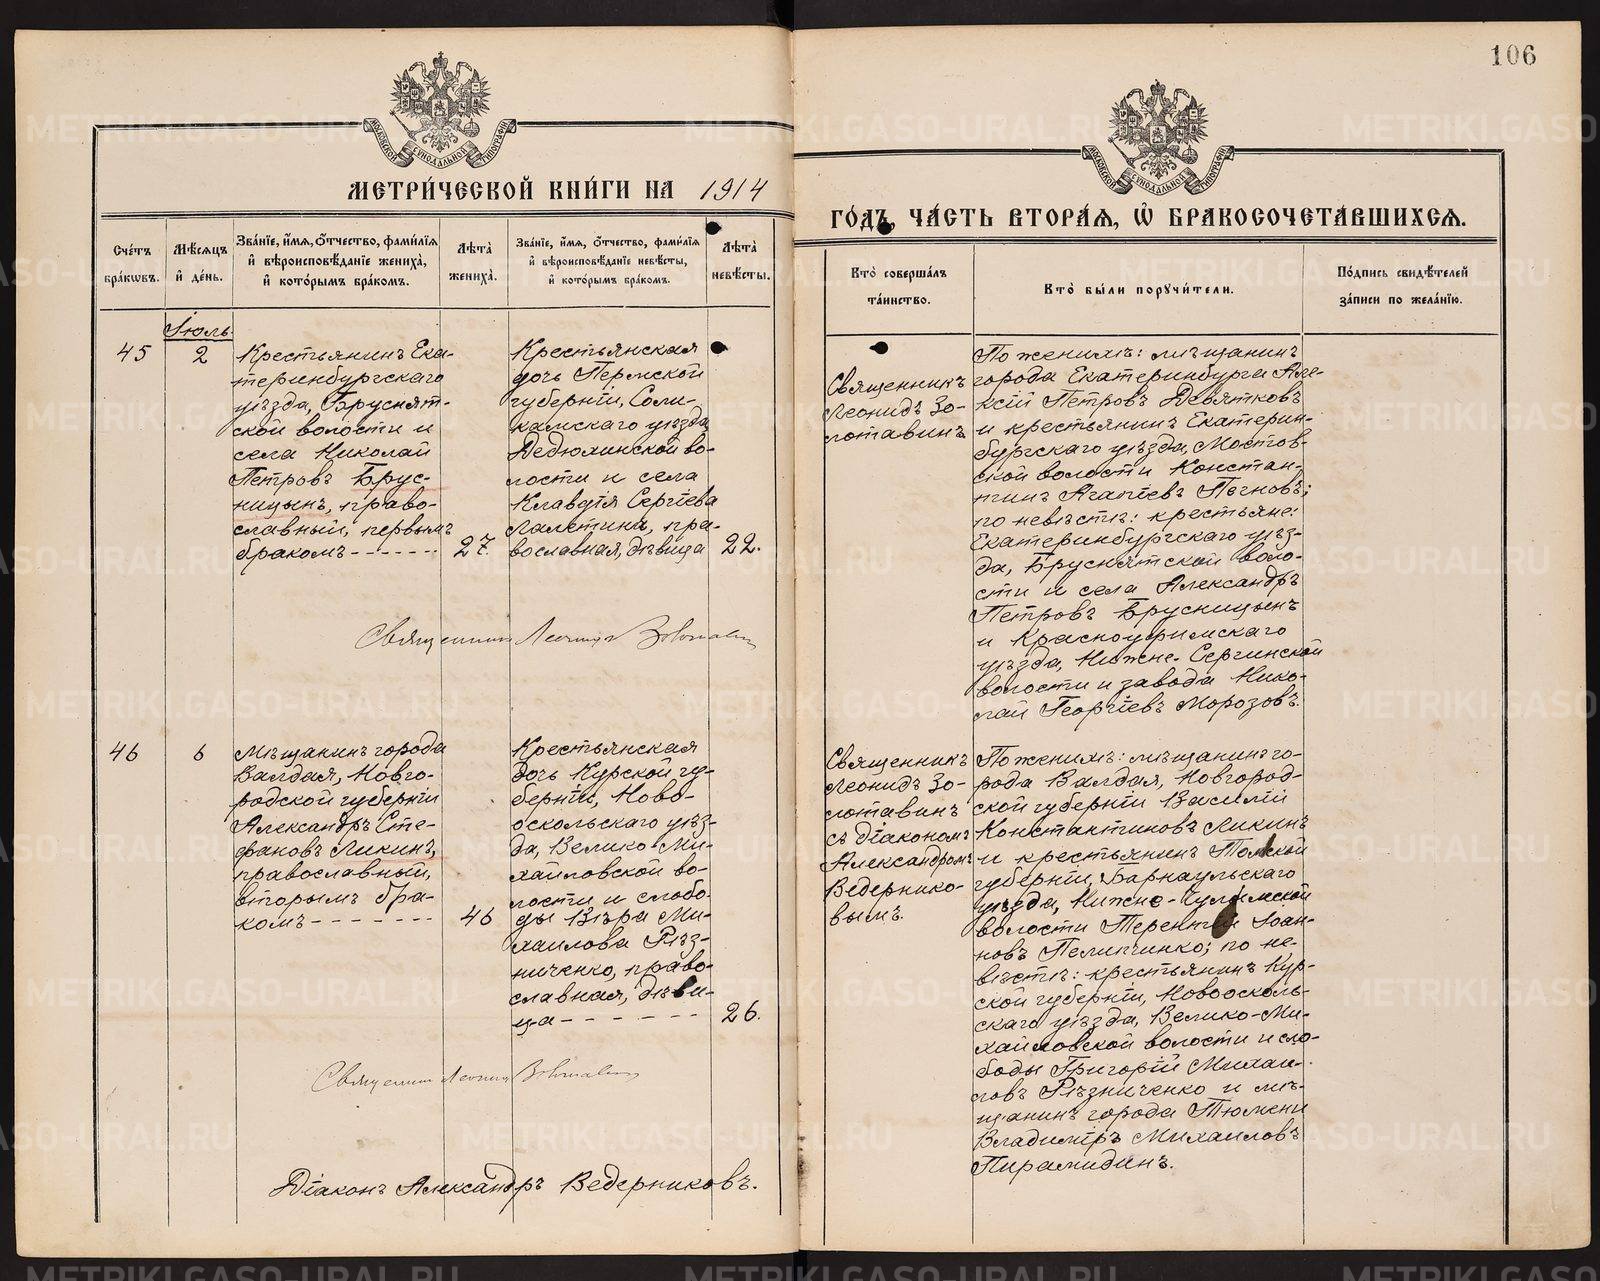 106
МЕТРИ́ЧЕСКОЙ КНИ́ГИ НА 1914
ГО́ДЪ, ЧА́СТЬ ВТОРА́Я, Ѡ҆ БРАКОСОЧЕТА́ВШИХСЯ.
МОСКОВСКОЙ СѴНОДАЛЬНОЙ ТИПОГРАФІИ
МОСКОВСКОЙ СѴНОДАЛЬНОЙ ТИПОГРАФІИ
Сче́тъ
бра́кѡвъ.
Мѣ́сяцъ
и҆ де́нь.
Зва́нїе, и҆́мя, ѻ҆́тчество, фами́лїя
и҆ вѣроисповѣ́данїе жениха̀,
и҆ кото́рымъ бра́комъ.
Лѣта̀
жениха̀.
Зва́нїе, и҆́мя, ѻ҆́тчество, фами́лїя
и҆ вѣроисповѣ́данїе невѣ́сты,
и҆ кото́рымъ бра́комъ.
Лѣта̀
невѣ́сты.
Кто̀ соверша́лъ
та́инство.
Кто̀ бы́ли порꙋчи́тели.
По́дпись свидѣ́телей
за́писи по жела́нїю.
Іюль
45
2
Крестьянинъ Ека-
теринбургскаго
уѣзда, Бруснят-
ской волости и
села Николай
Петровъ Брус-
ницынъ, право-
славный, первымъ
бракомъ-------
27.
Крестьянская
дочь Пермской
губерніи, Соли-
камскаго уѣзда
Дедюхинской во-
лости и села
Клавдія Сергіева
Лалетина, пра-
вославная, дѣвица
22.
Священникъ
Леонидъ Зо-
лотавинъ
По женихѣ: мѣщанинъ
города Екатеринбурга Але-
ксій Петровъ Девятковъ
и крестьянинъ Екатерин-
бургскаго уѣзда, Мостов-
ской волости Констан-
тинъ Агапіевъ Пегновъ;
по невѣстѣ: крестьяне:
Екатеринбургскаго уѣз-
да, Бруснятской воло-
сти и села Александръ
Петровъ Брусницынъ
и Красноуфимскаго
уѣзда, Нижне-Сергинской
волости и завода Нико-
лай Георгіевъ Морозовъ.
Священникъ Леонидъ Золотавинъ
46
6
Мѣщанинъ города
Валдая, Новго-
родской губерніи
Александръ Сте-
фановъ Ликинъ,
православный,
вторымъ бра-
комъ-------
46
Крестьянская
дочь Курской гу-
берніи, Ново-
оскольскаго уѣз-
да, Велико-Ми-
хайловской во-
лости и слобо-
ды Вѣра Ми-
хаилова Рѣз-
ниченко, право-
славная, дѣви-
ца-------
26.
Священникъ
Леонидъ Зо-
лотавинъ
съ діакономъ
Александромъ
Ведернико-
вымъ.
По женихѣ: мѣщанинъ го-
рода Валдая, Новгород-
ской губерніи Василій
Константиновъ Ликинъ
и крестьянинъ Томской
губерніи, Барнаульскаго
уѣзда, Нижне-Чулымской
волости Терентій Іоан-
новъ Пелипчинко; по не-
вѣстѣ: крестьянинъ Кур-
ской губерніи, Новоосколь-
скаго уѣзда, Велико-Ми-
хайловской волости и сло-
боды Григорій Михаи-
ловъ Рѣзниченко и мѣ-
щанинъ города Тюмени
Владиміръ Михаиловъ
Пирамидинъ.
Священникъ Леонидъ Золотавинъ
Діаконъ Александръ Ведерниковъ.
METRIKI.GASO-URAL.RU